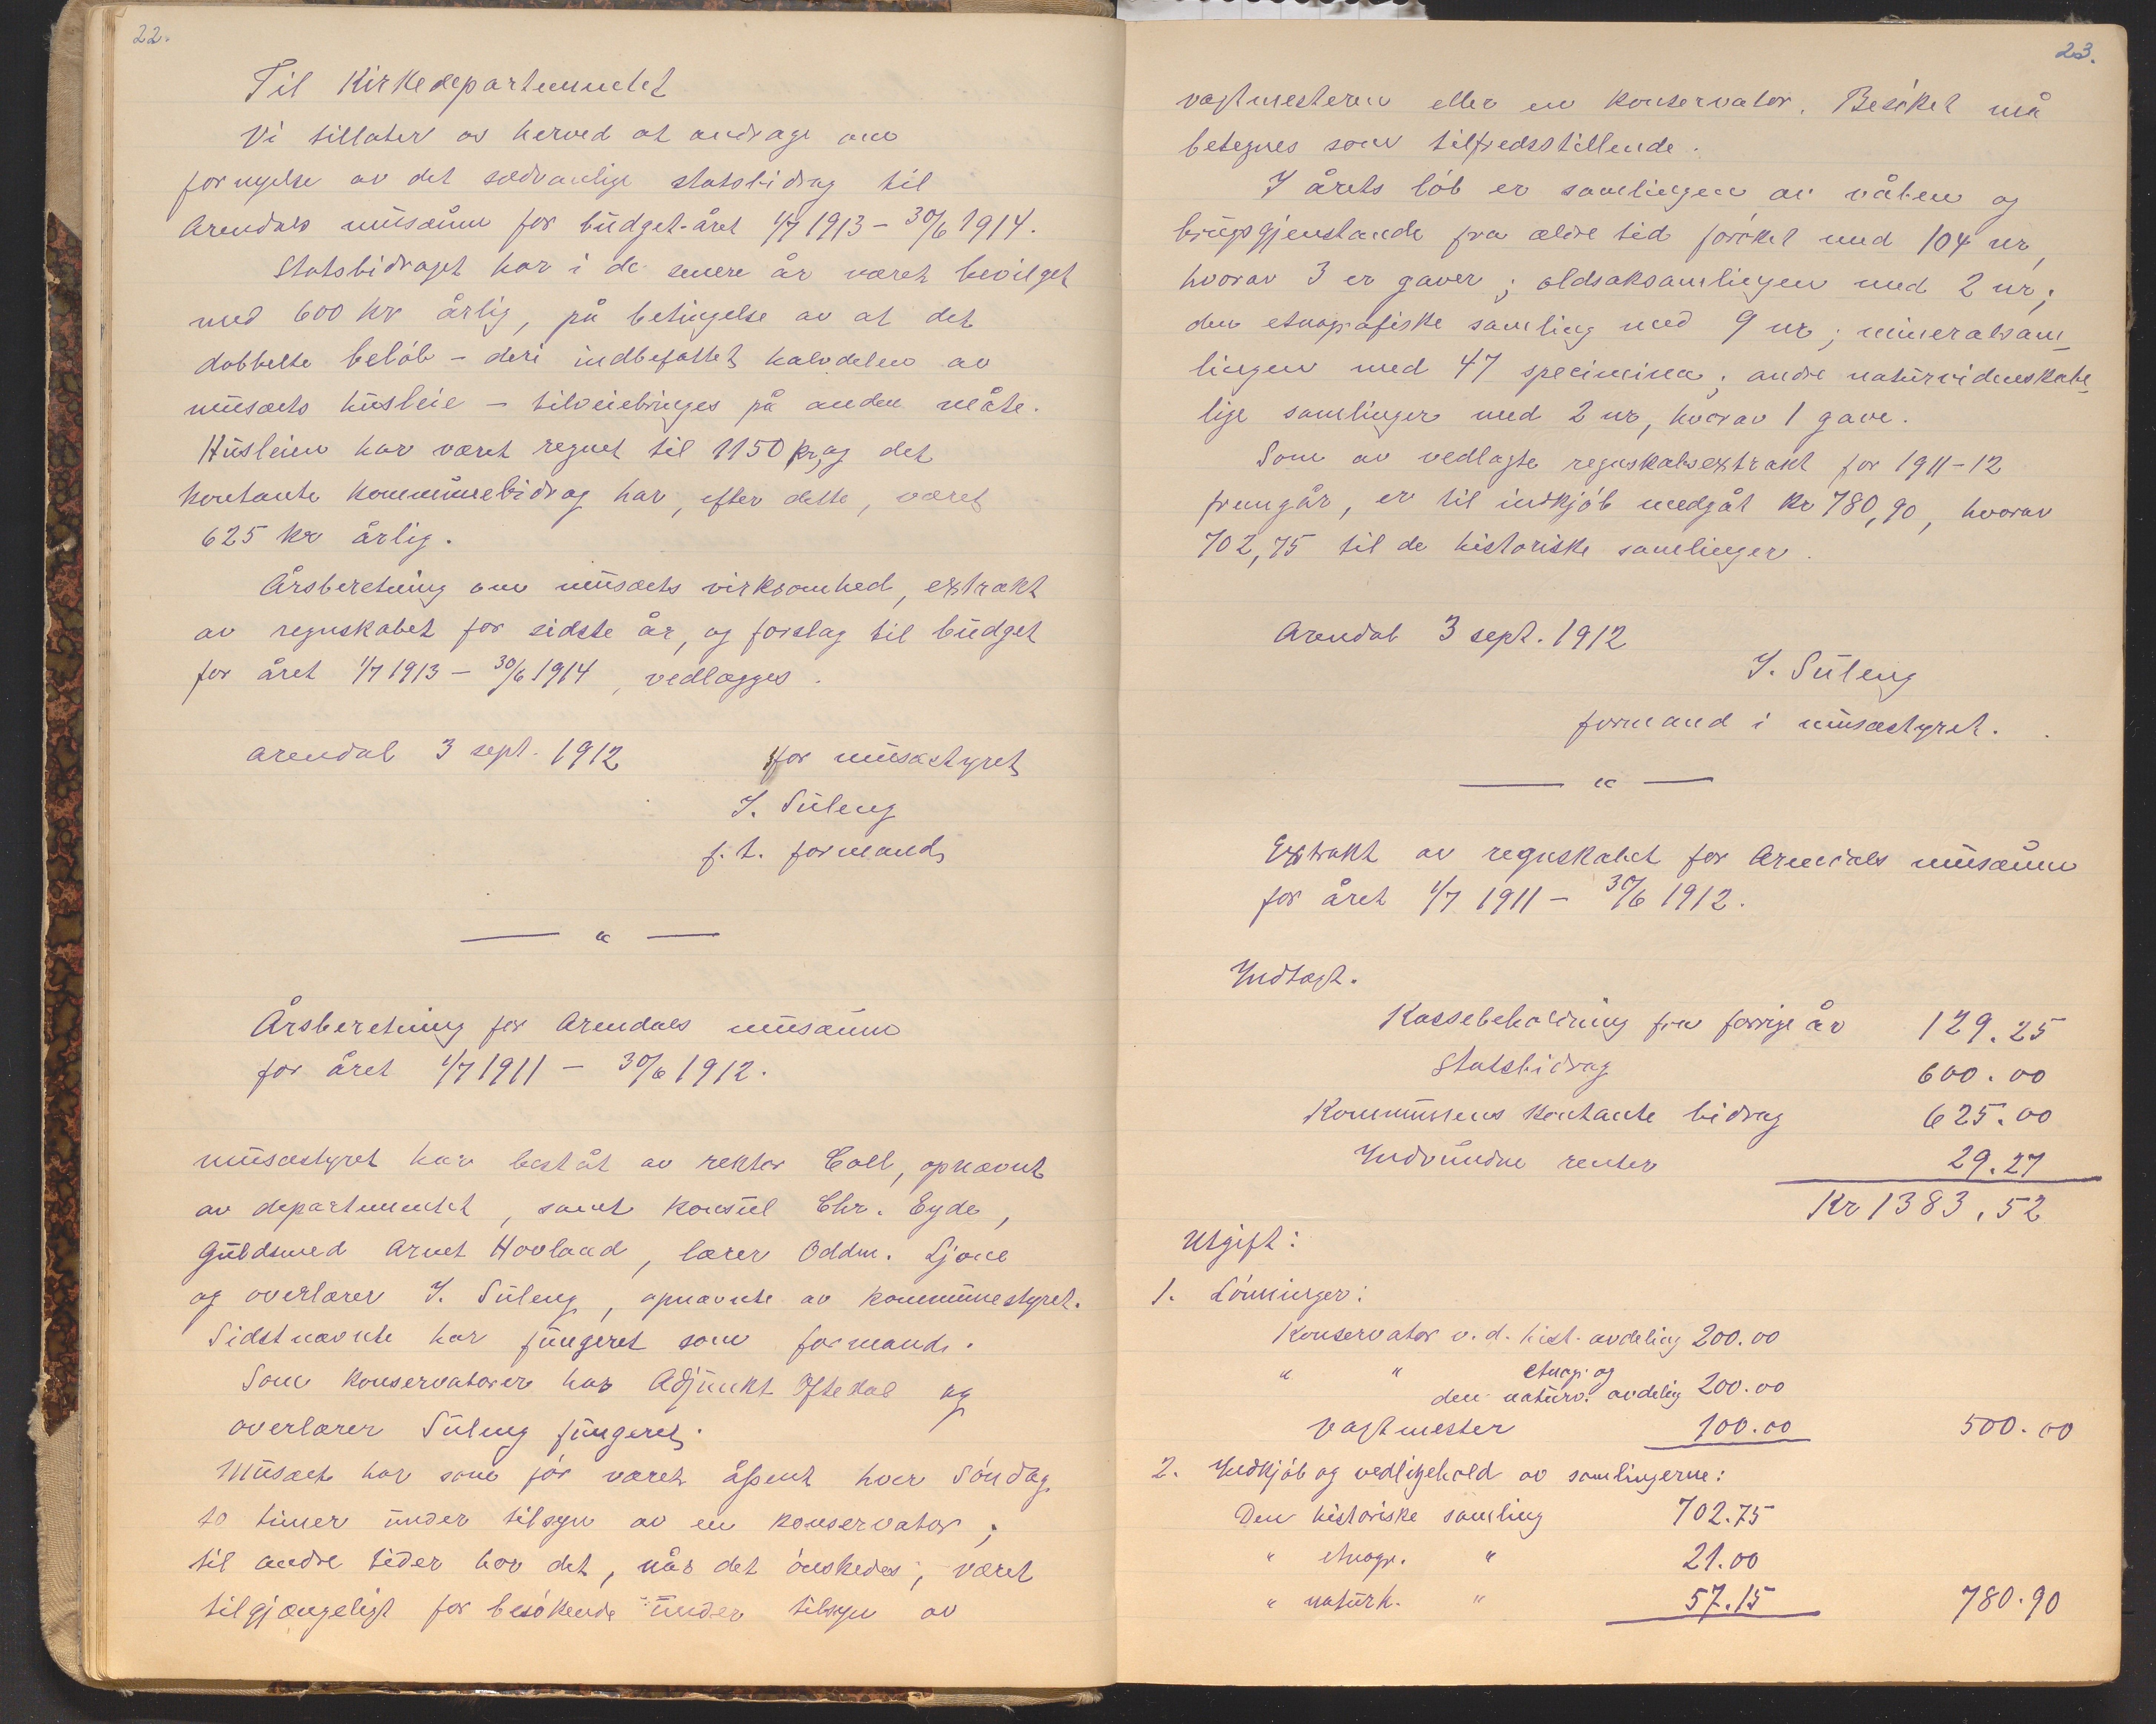 22.
Til Kirkedepartementet
Vi tillater os herved at andrage om
fornyelse av det sedvanlige statsbidrag til
Arendals musæum for budget-året 1/7 1913 - 30/6 1914.
Statsbidraget har i de senere år været bevilget
med 600 kr årlig, på betingelse av at det
dobbelte beløb - deri indbefattet halvdelen av
musæets husleie - tilveiebringes på anden måte.
Husleien har været regnet til 1150 kr, og det
kontante kommunebidrag har, efter dette, været
625 kr årlig.
Årsberetning om musæets virksomhed, extrakt
av regnskabet for sidste år, og forslag til budget
for året 1/7 1913 - 30/6 1914, vedlægges.
Arendal 3 sept. 1912 for musæstyret
I. Suleng
f. t. formand
— " —
Årsberetning for Arendals musæum
for året 1/7 1911 - 30/6 1912.
Musæstyret har beståt av rektor Coll, opnævnt
av departementet, samt konsul Chr. Eyde,
Guldsmed Arnet Hovland, lærer Oddm. Ljone
og overlærer I. Suleng, opnævnte av kommunestyret.
Sidstnævnte har fungeret som formand.
Som konservatorer har Adjunkt Iftedal og
overlærer Suleng fungeret.
Musæet har som før været åpent hver Söndag
to timer under tilsyn av en konservator;
til andre tider har det, når det ønskedes, været
tilgjængeligt for besøkende under tilsyn av
23.
vagtmesteren eller en konservator. Besøket må
betegnes som tilfredsstillende.
I årets løb er samlingen av våben og
brugsgjenstande fra ældre tid forøket med 104 nr,
hvorav 3 er gaver; oldsaksamlingen med 2 nr;
den etnografiske samling med 9 nr; mineralsam_
lingen med 47 specimina; andre naturvidenskabe_
lige samlinger med 2 nr, hvorav 1 gave.
Som av vedlagte regnskabsextrakt for 1911-12
fremgår, er til indkjøb medgåt kr 780,90, hvorav
702,75 til de historiske samlinger.
Arendal 3 sept. 1912
I. Suleng
formand i musæstyret.
— " —
Extrakt av regnskabet for Arendals musæum
for året 1/7 1911 - 30/6 1912.
Indtægt.
Kassebeholdning fra forrige år 129.25
Statsbidrag 600.00
Kommunens kontante bidrag 625.00
Indvundne renter 29.27
Kr 1383,52
Utgift:
1. Lønninger:
Konservator v. d. hist. avdeling 200.00
" " etnogr. og
den naturv. avdeling 200.00
Vagtmester 100.00 500.00
2. Indkjøb og vedligehold av samlingerne:
Den historiske samling 702.75
" etnogr. " 21.00
" naturh. " 57.15 780.90